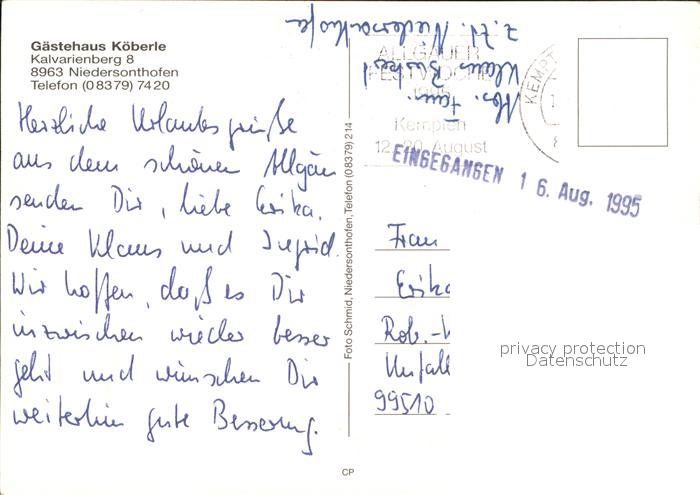 Gästehaus Köberle
Kalvarienberg 8
8963 Niedersonthofen
Telefon (0 83 79) 74 20
Herzliche Urlaubsgrüße
aus dem schönen Allgäu
senden Dir, liebe Erika,
Deine Klaus und Ingrid.
Wir hoffen, daß es Dir
inzwischen wieder besser
geht und wünschen Dir
weiterhin gute Besserung.
Foto Schmid, Niedersonthofen, Telefon (08379) 214
CP
Abs. Fam.
Klaus
z. Zt. Niedersonthofen
ALLGÄUER
FESTWOCHE
1995
Kempten
12.-20. August
KEMPT
EINGEGANGEN 1 6. Aug. 1995
Frau
Erika
Rob.-
Unfall
99510
privacy protection
Datenschutz